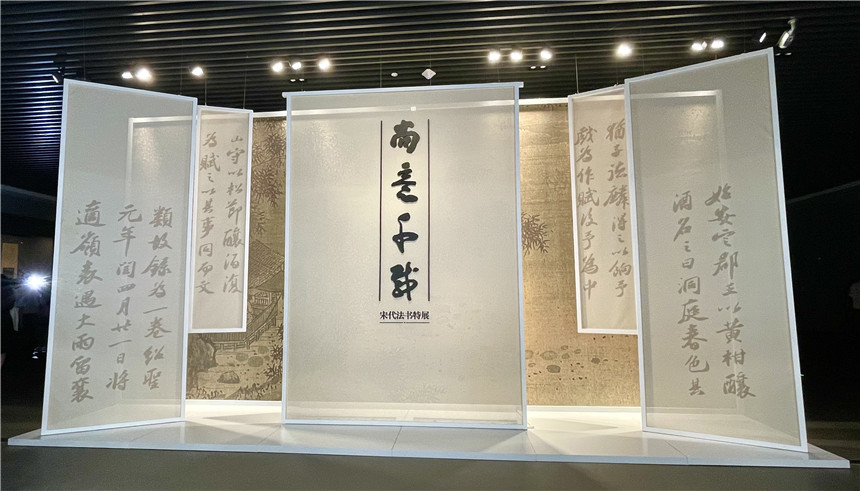 始安定郡王以黄柑釀
酒名之曰洞庭春色其
猶子德麟得之以餉予
戲為作賦後予為中
尚意千載
宋代法书特展
山守以松節釀酒復
為賦之以其事同而文
類故錄為一卷紹聖
元年閏四月廿一日將
適嶺表遇大雨留襄